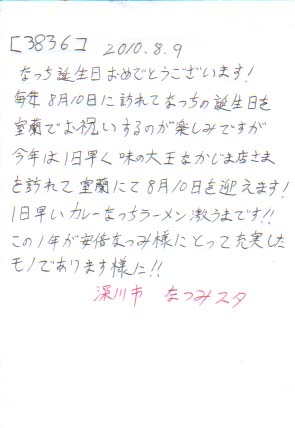 [3836] 2010.8.9
なっち誕生日おめでとうございます!
毎年8月10日に訪れてなっちの誕生日を
室蘭でお祝いするのが楽しみですが
今年は1日早く味の大王なかじま店さま
を訪れて室蘭にて8月10日を迎えます!
1日早いカレーなっちラーメン激うまです!!
この1年が安倍なつみ様にとって充実した
モノであります様に!!
深川市 なつみスタ